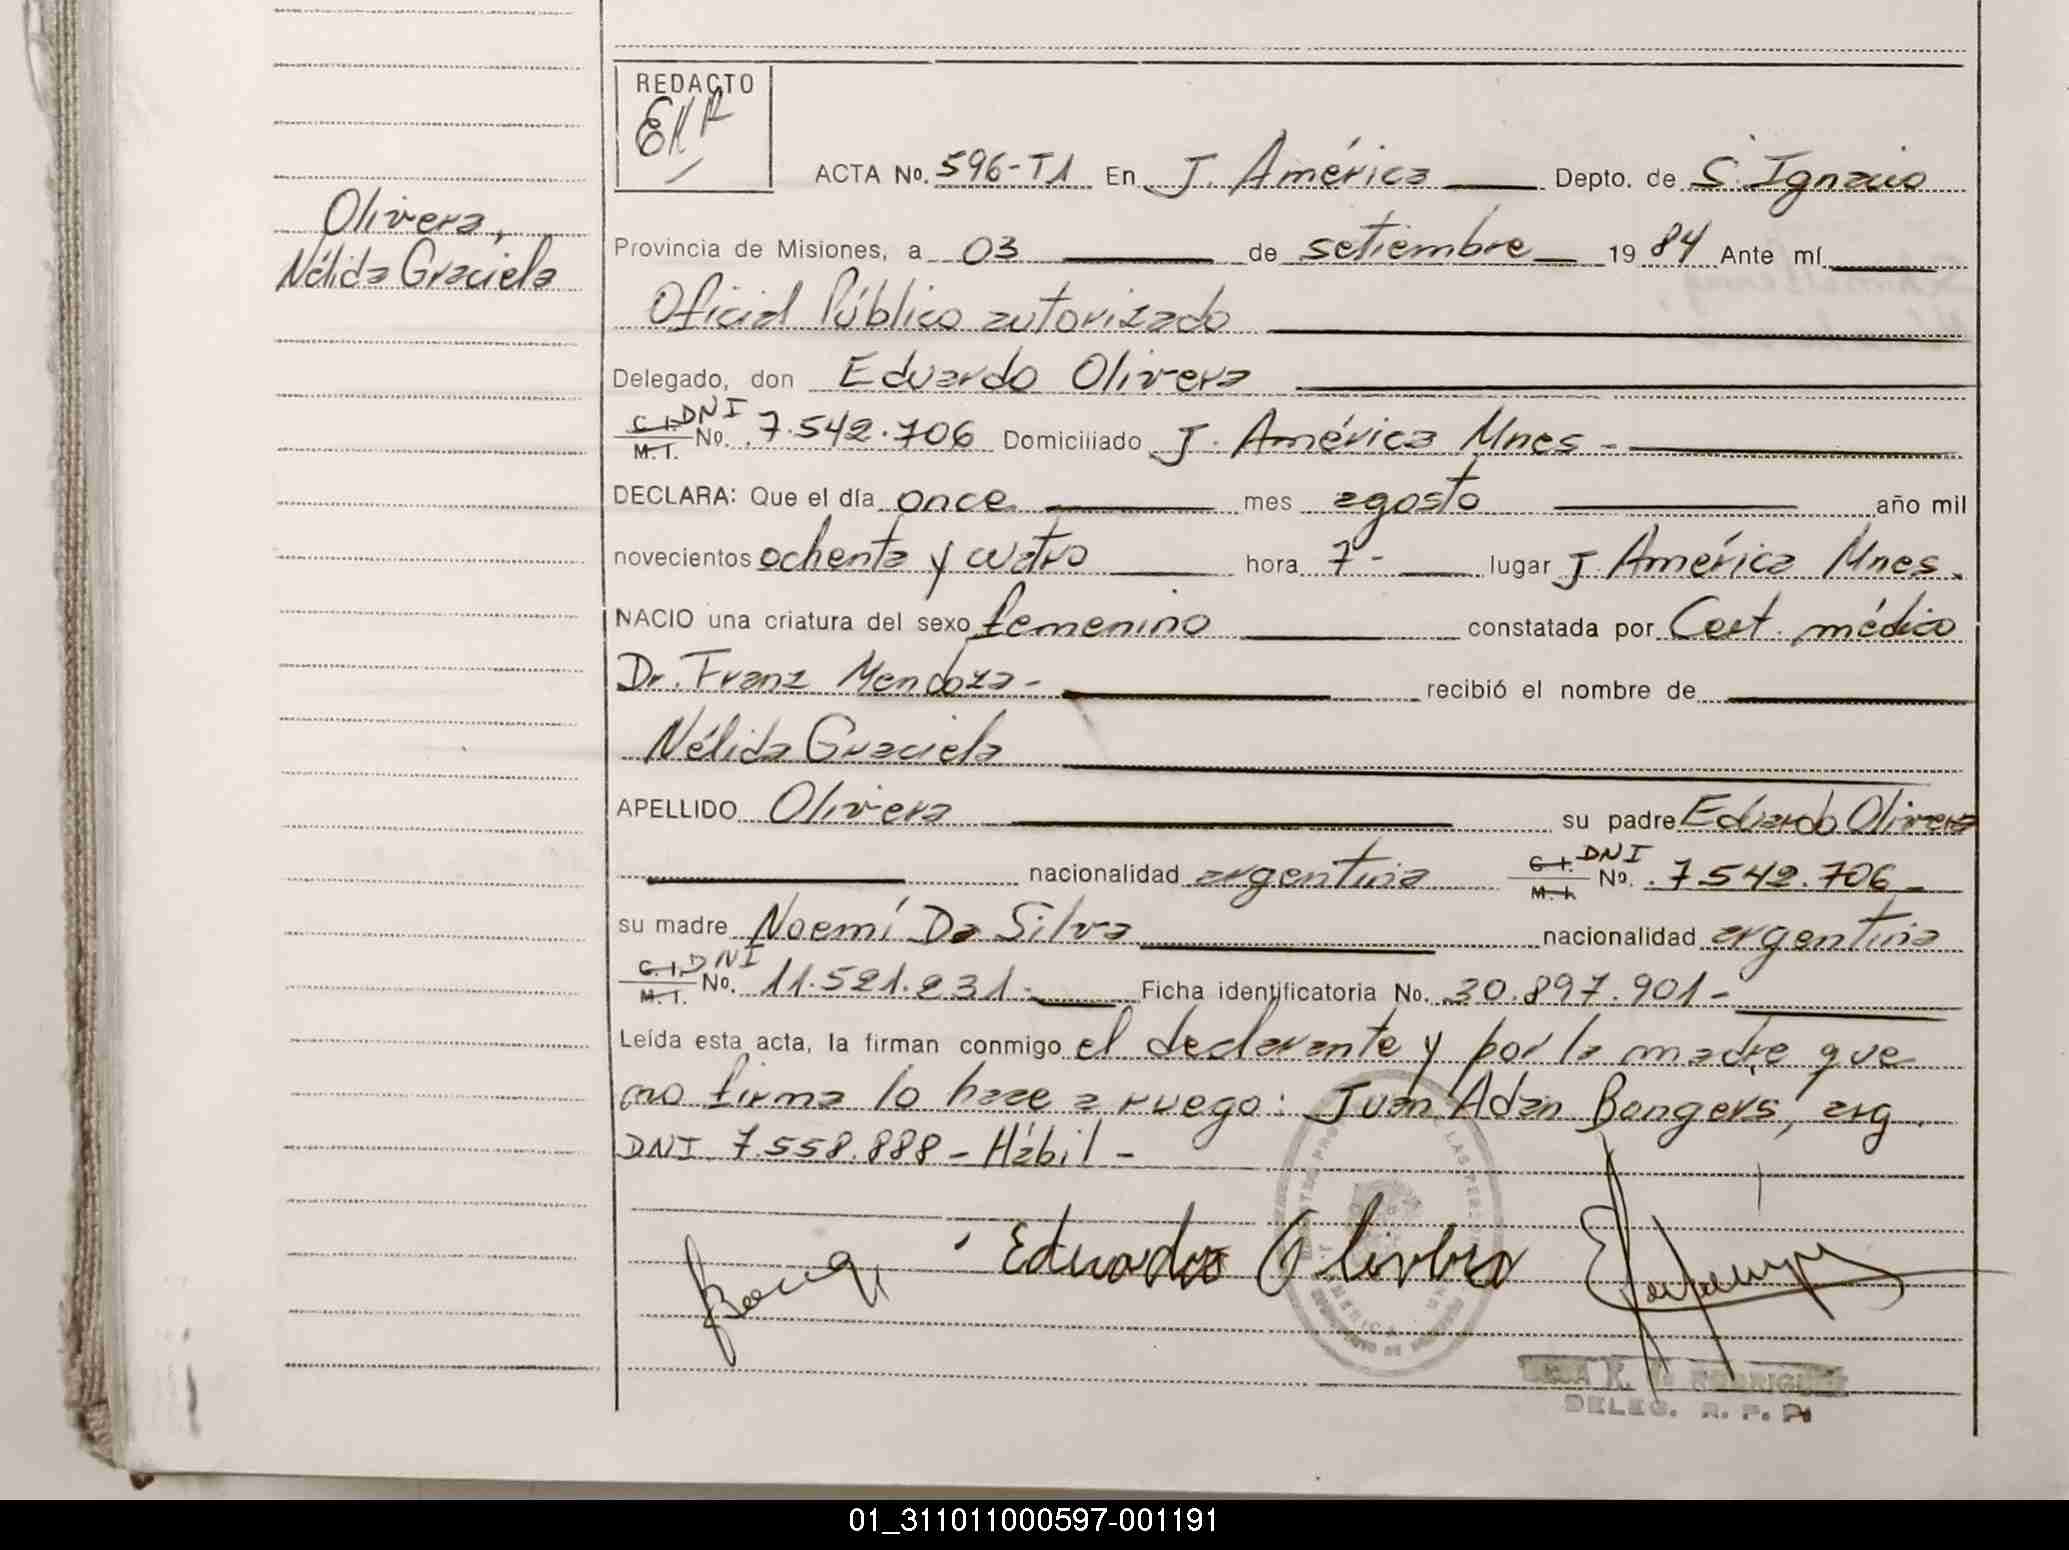 REDACTO
EKR
ACTA No. 596-T1 En J. América Depto. de S. Ignacio
Olivera,
Nélida Graciela
Provincia de Misiones, a 03 de setiembre 1984 Ante mí
Oficial Público autorizado
Delegado, don Eduardo Olivera
C.I. DNI
M.I. No. 7.542.706 Domiciliado J. América Mnes -
DECLARA: Que el día once mes agosto año mil
novecientos ochenta y cuatro hora 7- lugar J. América Mnes.
NACIO una criatura del sexo femenino constatada por Cert. médico
Dr. Franz Mendoza - recibió el nombre de
Nélida Graciela
APELLIDO Olivera su padre Eduardo Olivera
nacionalidad argentina C.I. DNI M.I. No. 7542.706 -
su madre Noemí Da Silva nacionalidad argentina
C.I. DNI M.I. No. 11.521.231 - Ficha identificatoria No. 30.897.901 -
Leída esta acta, la firman conmigo el declarante y por la madre que
no firma lo hace a ruego: Juan Adan Bangers, arg.
DNI 7.558.888 - Hábil -
Eduardo Olivera
RODRIGUEZ
DELEG. R. P. P.
01_311011000597-001191